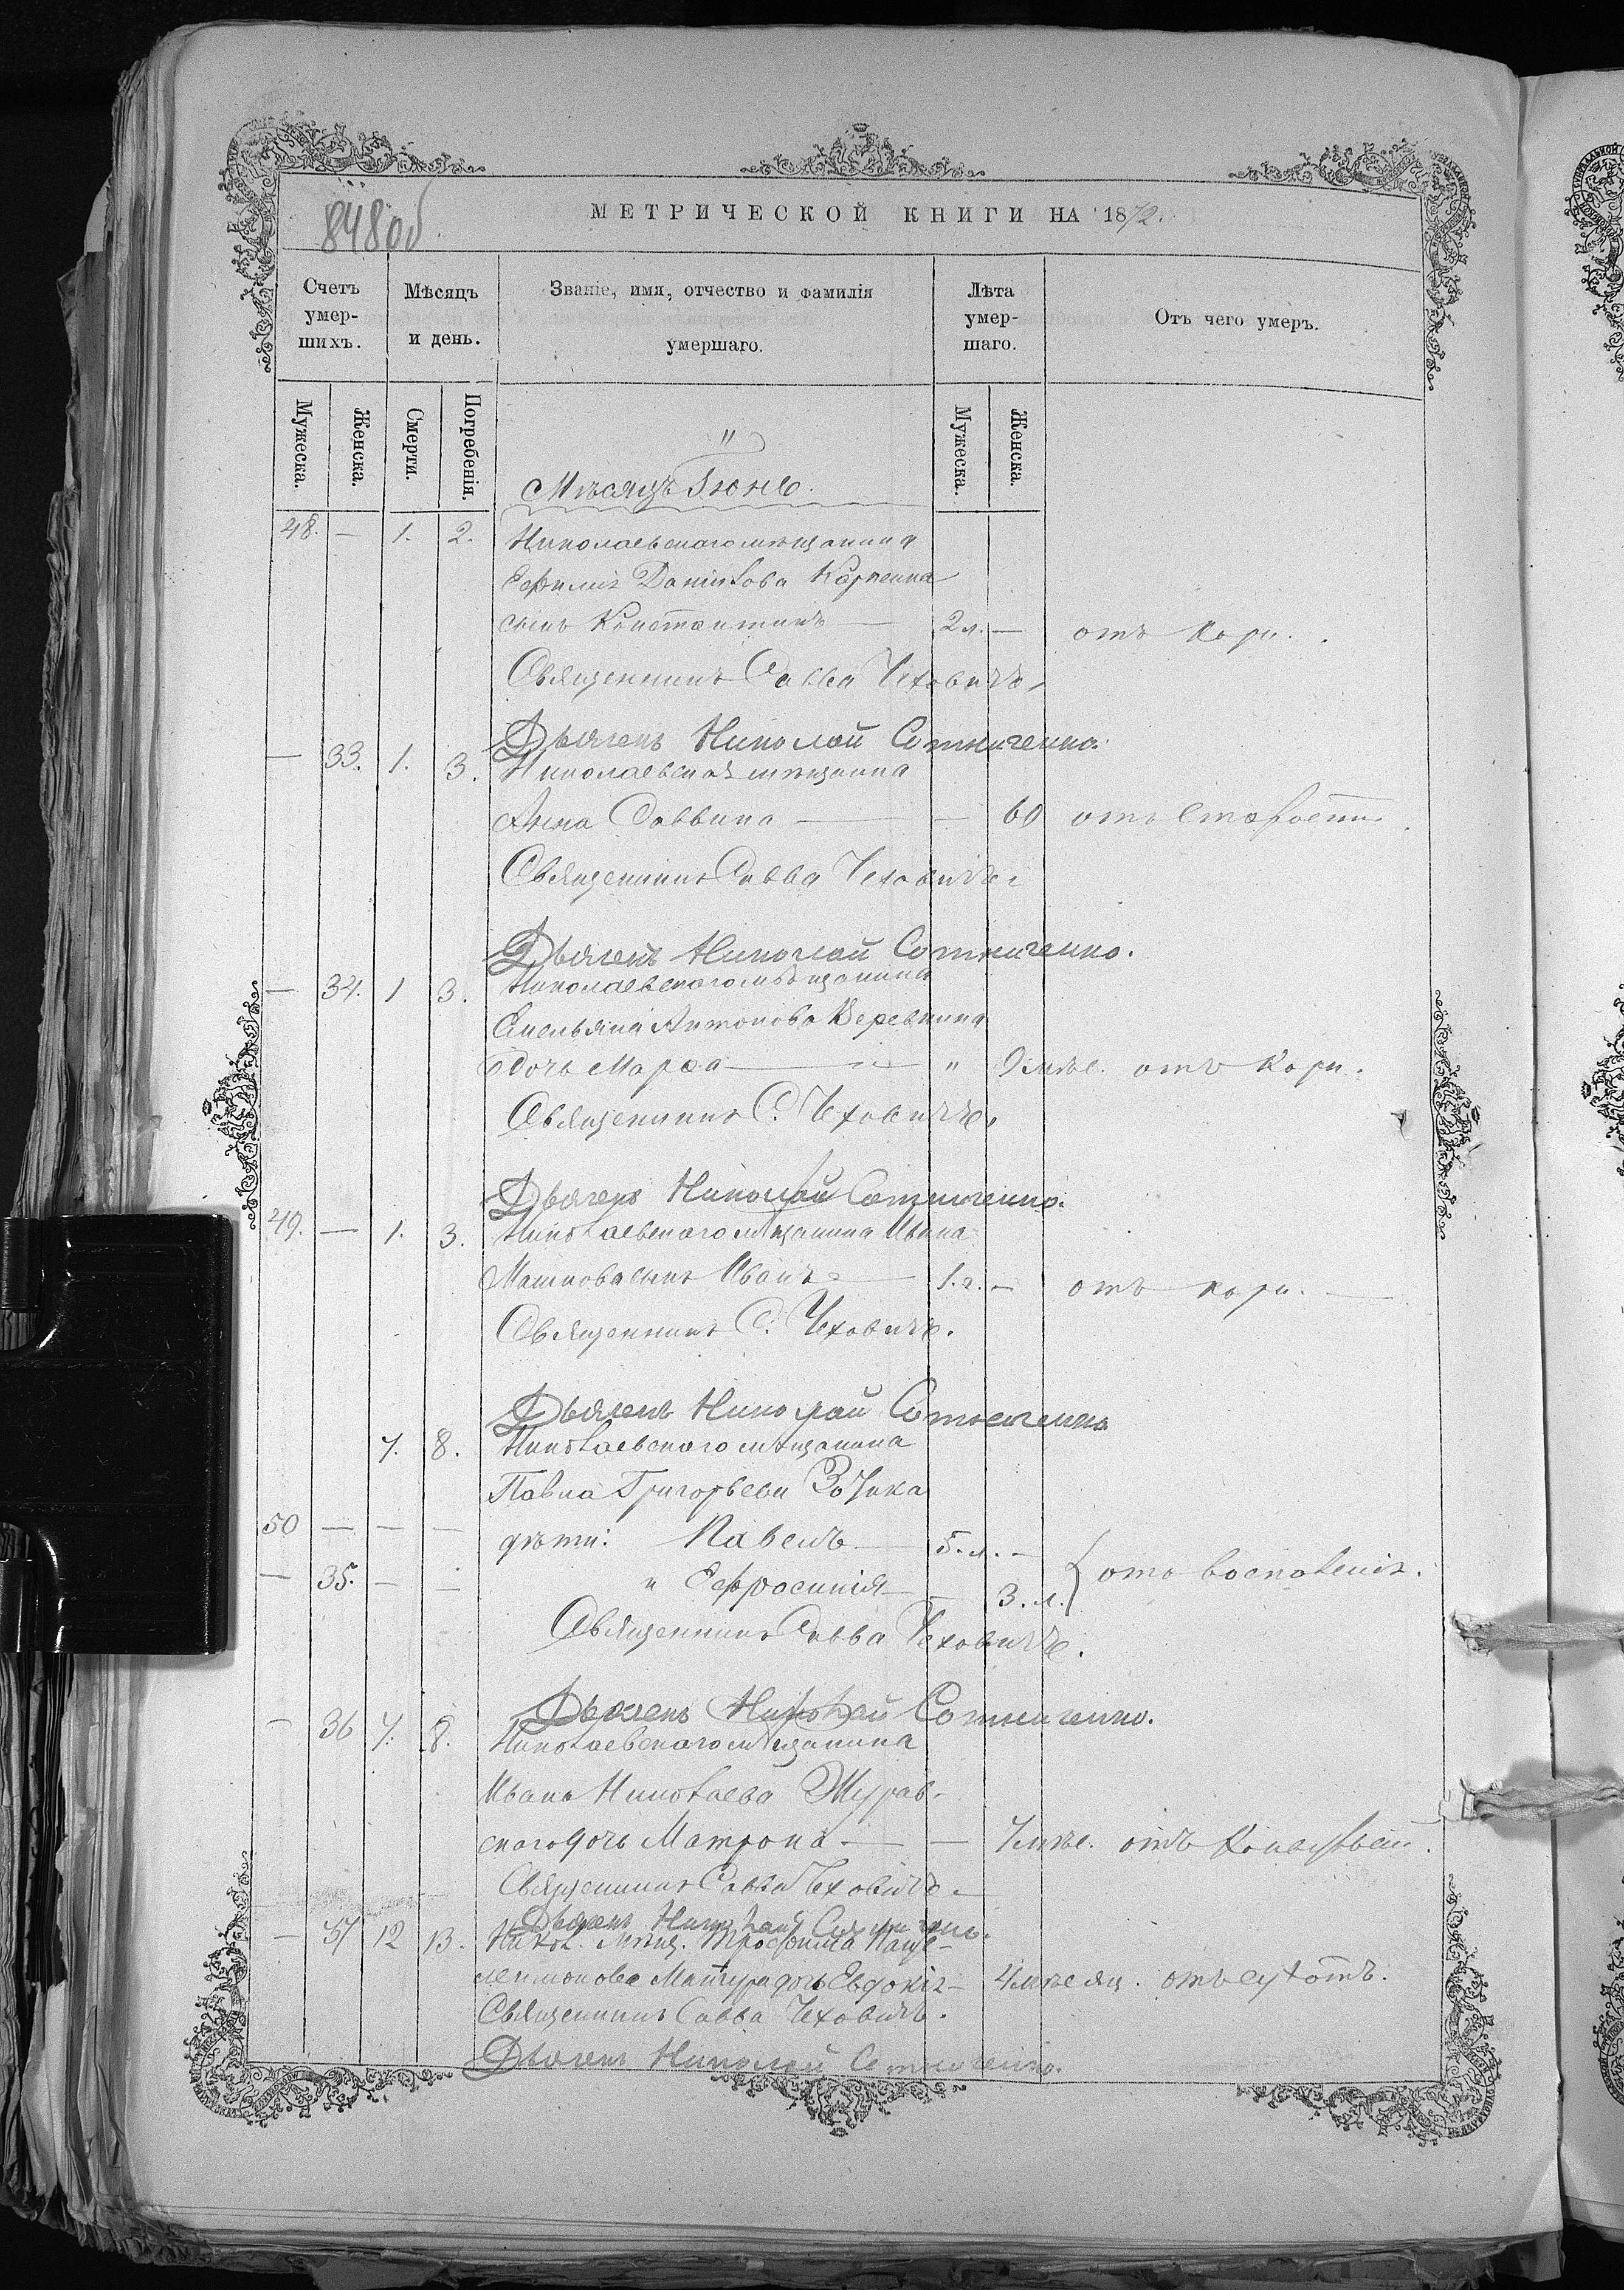 848об.
МЕТРИЧЕСКОЙ КНИГИ НА 1872.
Счетъ умер-шихъ.
Мѣсяцъ и день.
Званіе, имя, отчество и фамилія умершаго.
Лѣта умер-шаго.
Отъ чего умеръ.
Мужеска.
Женска.
Смерти.
Погребенія.
Мужеска.
Женска.
"
Мѣсяцъ Іюнь.
48. — 1. 2. Николаевскаго мѣщанина
Ефимія Данилова Карпенка
сынъ Константинъ — 2 л. — отъ кори.
Священникъ Савва Чеховичъ.
Дьячекъ Николай Сотниченко.
— 33. 1. 3. Николаевская мѣщанка
Анна Саввина — — 60 отъ старости.
Священникъ Савва Чеховичъ.
Дьячекъ Николай Сотниченко.
— 34. 1 3. Николаевскаго мѣщанина
Емельяна Антонова
дочь Марѳа — " 9 мѣс. отъ кори.
Священникъ С. Чеховичъ.
Дьячекъ Николай Сотниченко.
49. — 1. 3. Николаевскаго мѣщанина Ивана
сынъ Иванъ — 1. г. — отъ кори. —
Священникъ С. Чеховичъ.
Дьячекъ Николай Сотниченко
7. 8. Николаевскаго мѣщанина
Павла Григорьева
50 — — — дѣти: Павелъ — 5. л. —
— 35. — — " Ефросинія — — 3. л. { отъ воспаленія.
Священникъ Савва Чеховичъ.
Дьячекъ Николай Сотниченко.
— 36 7. 8. Николаевскаго мѣщанина
Ивана Николаева Журав-
скаго дочь Матрона — — 7 мѣс. отъ
Священникъ Савва Чеховичъ.
Дьячекъ Николай Сотниченко.
— 37 12 13. Никол. мѣщ. Трофима Панте-
леимонова дочь Евдокія — 4 мѣсяц. отъ сухотъ.
Священникъ Савва Чеховичъ.
Дьячекъ Николай Сотниченко.